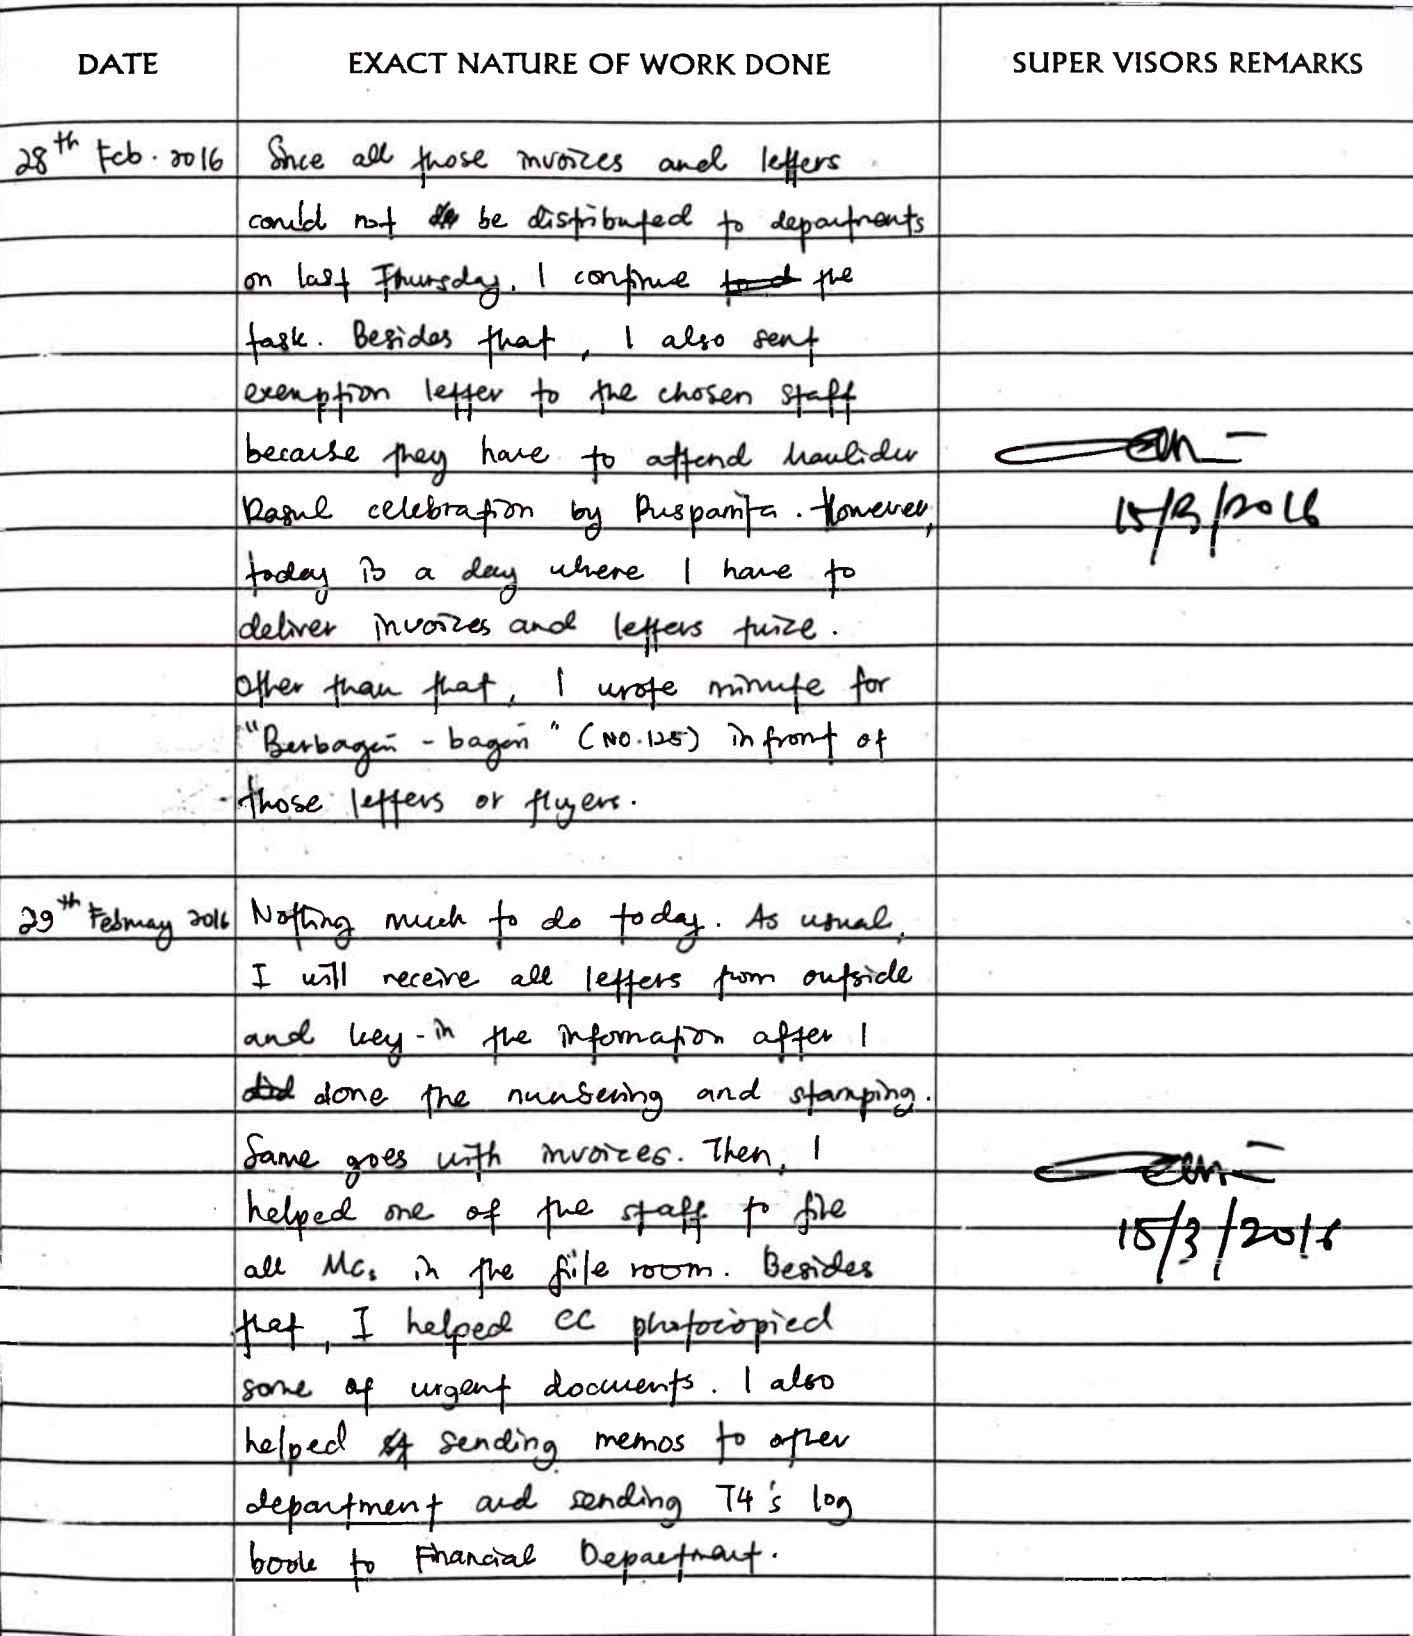 DATE EXACT NATURE OF WORK DONE SUPER VISORS REMARKS
28th Feb. 2016 Since all those invoices and letters
could not be distributed to departments
on last Thursday, I continue the
task. Besides that, I also sent
exemption letter to the chosen staff
because they have to attend Maulidur
Rasul celebration by Puspanita. However,
today is a day where I have to
deliver invoices and letters twice.
Other than that, I wrote minute for
"Berbagai - bagai" (NO.125) in front of
those letters or flyers.
15/3/2016
29th February 2016 Nothing much to do today. As usual,
I will receive all letters from outside
and key-in the information after I
did done the numbering and stamping.
Same goes with invoices. Then, I
helped one of the staff to file
all MCs in the file room. Besides
that, I helped CC photocopied
some of urgent documents. I also
helped sending memos to other
department and sending T4's log
book to Financial Department.
15/3/2016